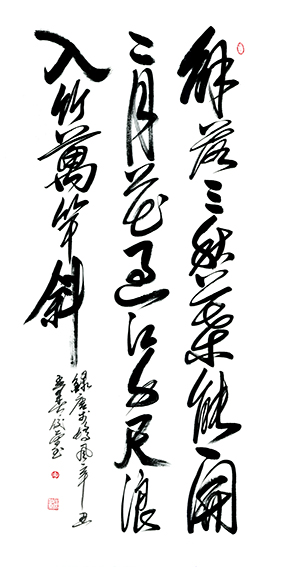 解落三秋葉能開
二月花過江千尺浪
入竹萬竿斜
錄唐李嶠風辛丑